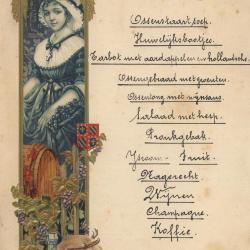 Ossenstaart soep.
Huwelijksbootjes.
Tarbot met aardappelen en hollandsche
Ossengebraad met groenten.
Ossentong met wijnsaus.
Salaad met hesp.
Pronkgebak.
Ijsroom - Fruit.
Nagerecht.
Wijnen
Champagne.
Koffie.